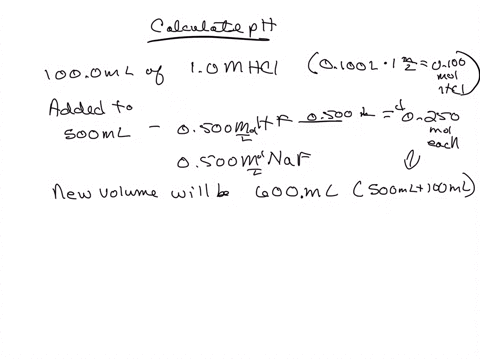 Calculate pH
100.0mL of 1.0M HCl (0.100L · 1 m/L = 0.100 mol HCl)
Added to
500mL - 0.500 mol/L HF 0.500 = 0.250 mol each
0.500 mol/L NaF
New volume will be 600.mL (500mL+100mL)